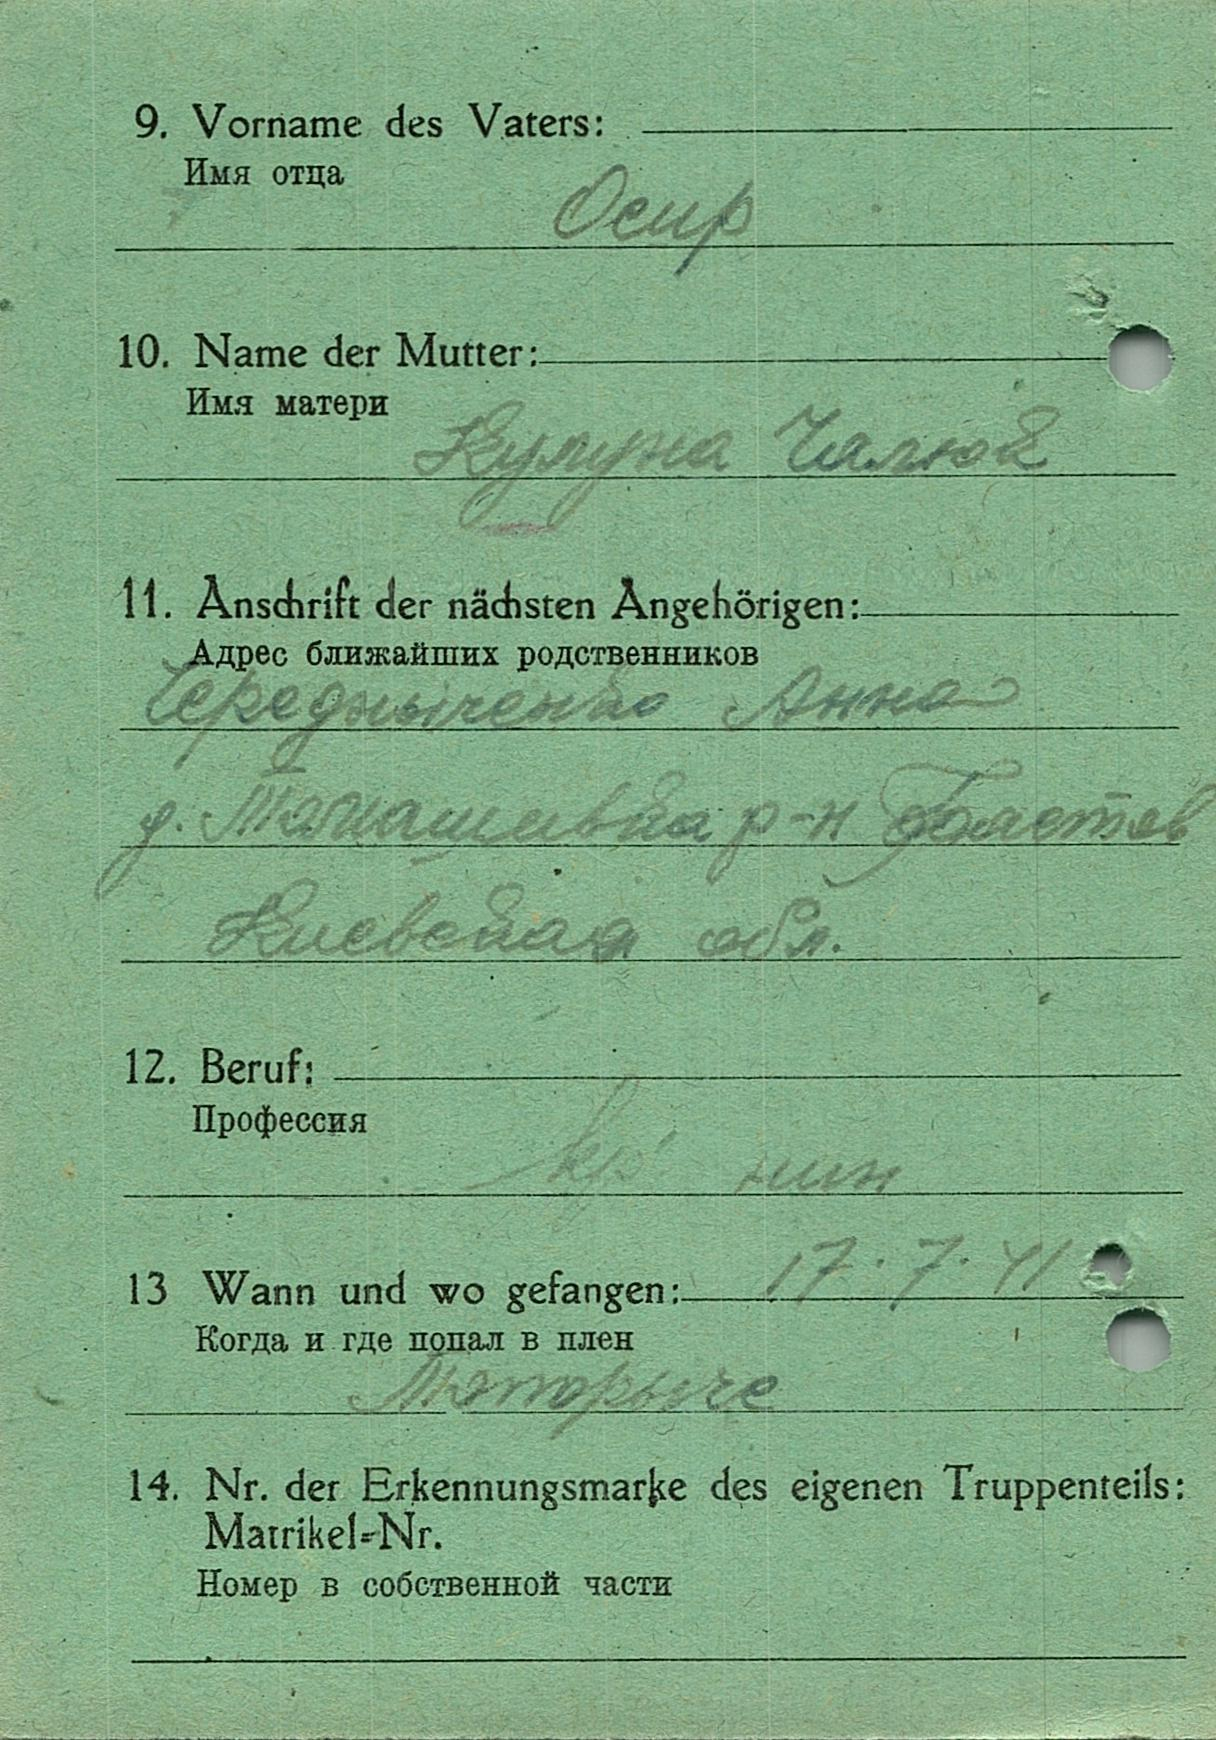 9. Vorname des Vaters:
Имя отца
Осир
10. Name der Mutter:
Имя матери
Чалюк
11. Anschrift der nächsten Angehörigen:
Адрес ближайших родственников
Чередныченко Анна
д. р-н Фастов
Киевская обл.
12. Beruf:
Профессия
13 Wann und wo gefangen: 17.7.41
Когда и где попал в плен
14. Nr. der Erkennungsmarke des eigenen Truppenteils:
Matrikel-Nr.
Номер в собственной части